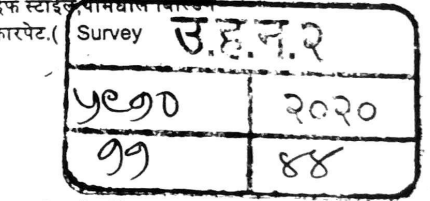 र्फ स्टाईल,
कारपेट.( Survey उ.ह.न.२
५८१० २०२०
११ ४४